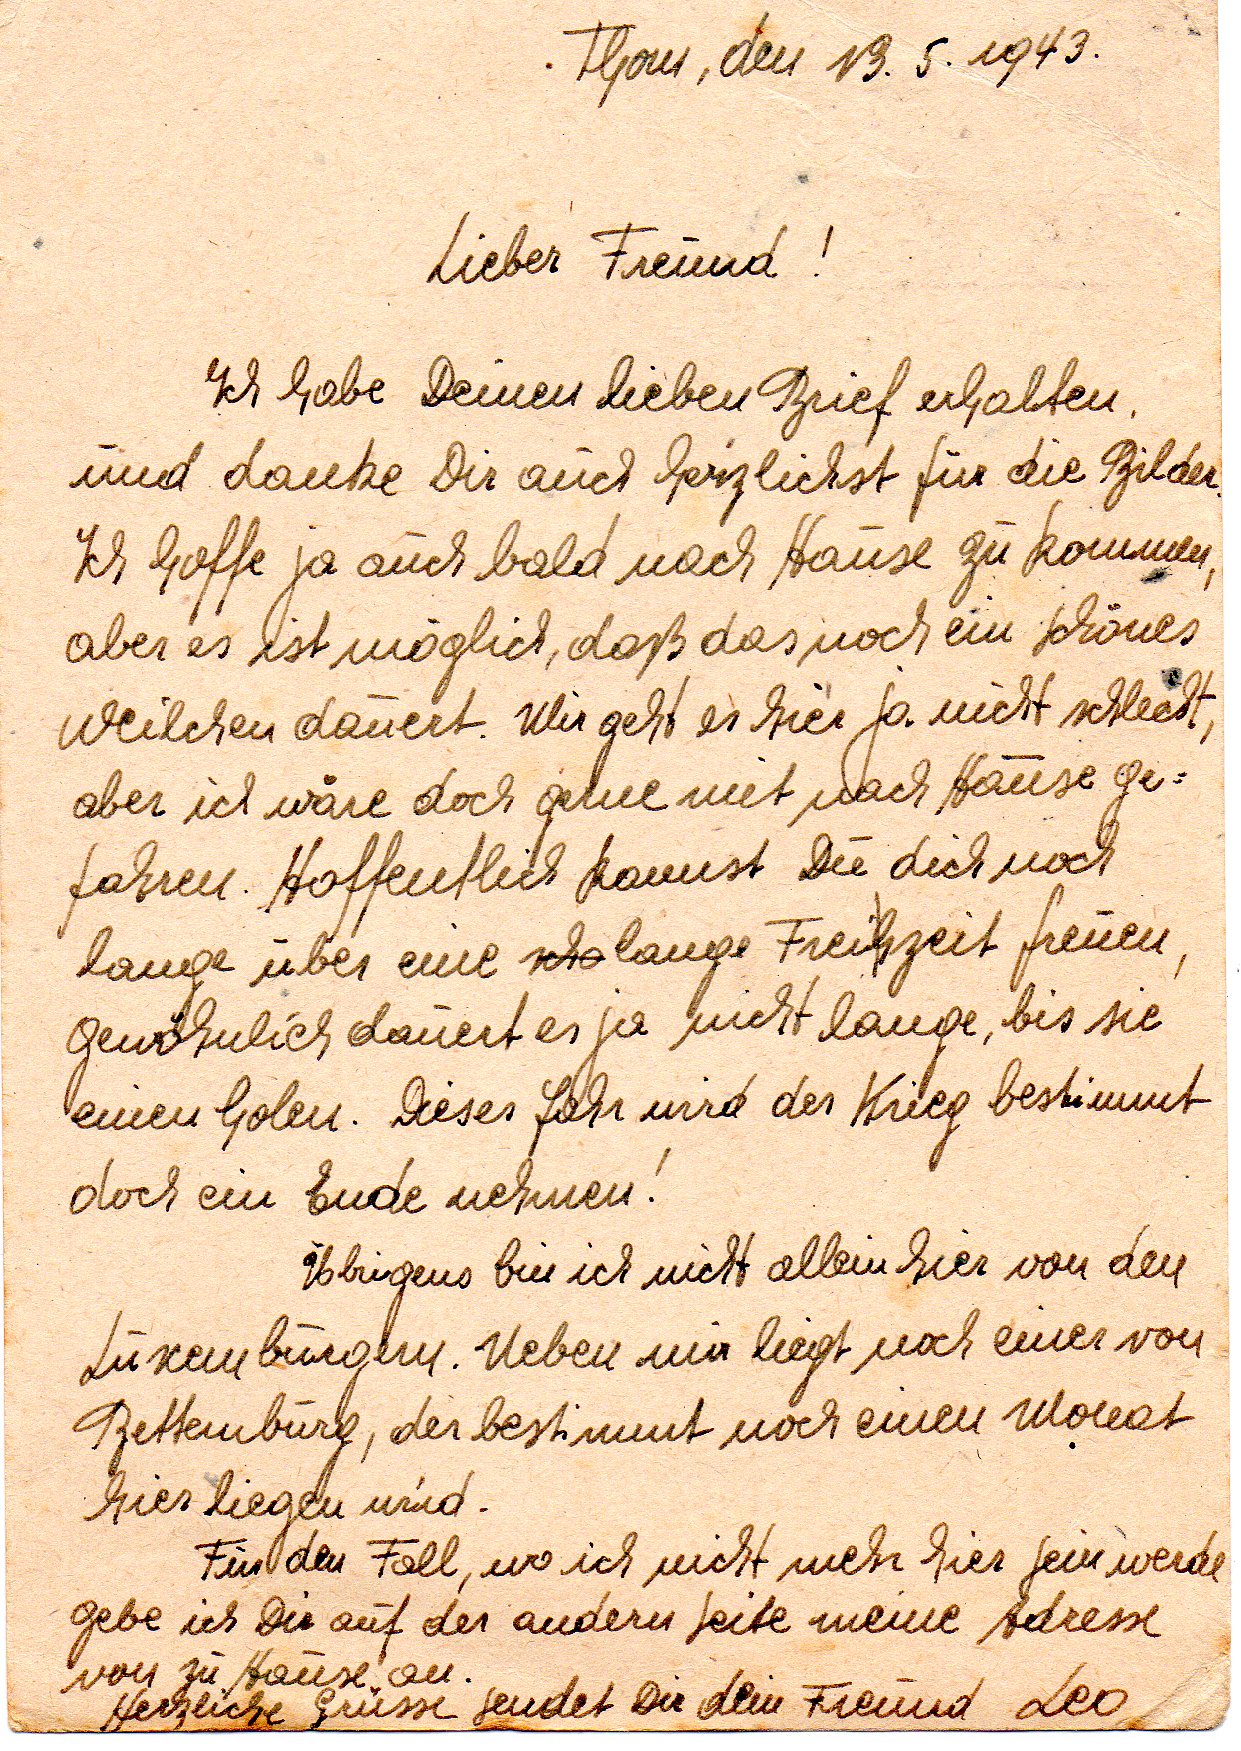 Thorn, den 13. 5. 1943.
Lieber Freund !
Ich habe Deinen lieben Brief erhalten.
und danke Dir auch herzlichst für die Bilder.
Ich hoffe ja auch bald nach Hause zu kommen,
aber es ist möglich, daß das noch ein schönes
Weilchen dauert. Mir geht es hier ja nicht schlecht,
aber ich wäre doch gerne mit nach Hause ge=
fahren. Hoffentlich kannst Du dich noch
lange über eine lange Freizeit freuen,
gewöhnlich dauert es ja nicht lange, bis sie
einen holen. Dieses Jahr wird der Krieg bestimmt
doch ein Ende nehmen!
Übrigens bin ich nicht allein hier von den
Luxemburgern. Neben mir liegt noch einer von
Bettemburg, der bestimmt noch einen Monat
hier liegen wird.
Für den Fall, wo ich nicht mehr hier sein werde
gebe ich Dir auf der andern Seite meine Adresse
von zu Hause an.
Herzliche Grüsse sendet Dir dein Freund Leo